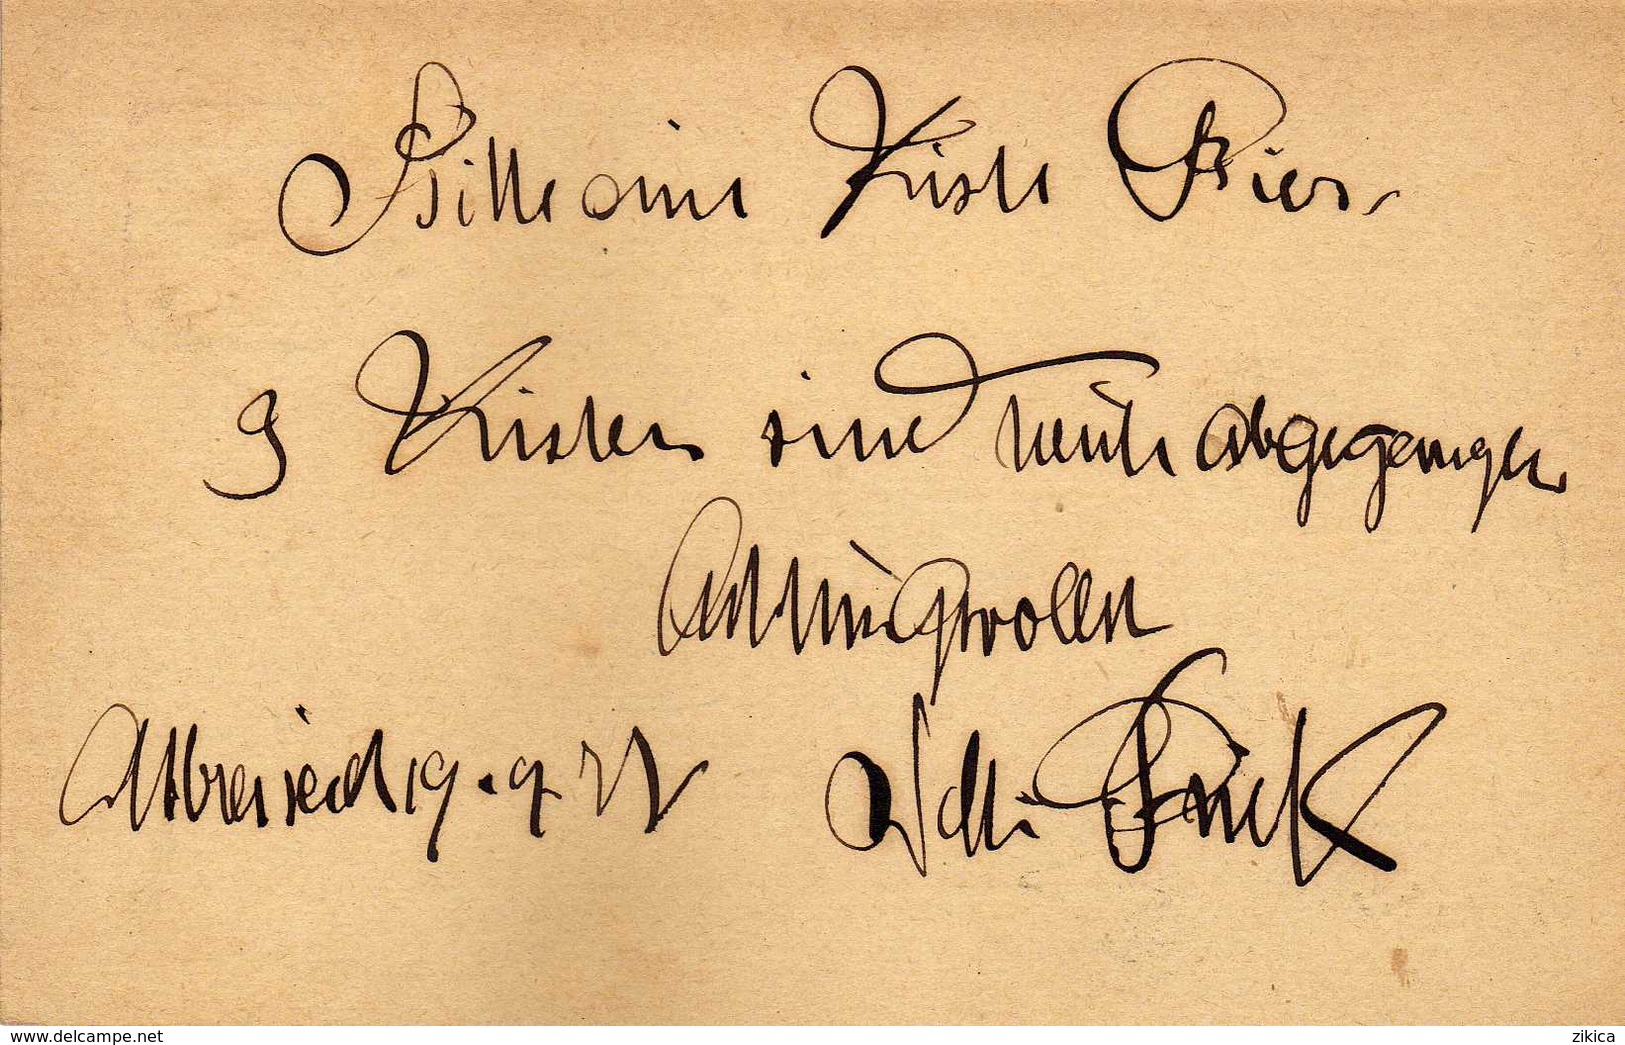 Bitte eine Kiste Bier.
3 Kisten sind heute abgegangen
Achtungsvollst
Altbreisach 19.9.
www.delcampe.net
zikica